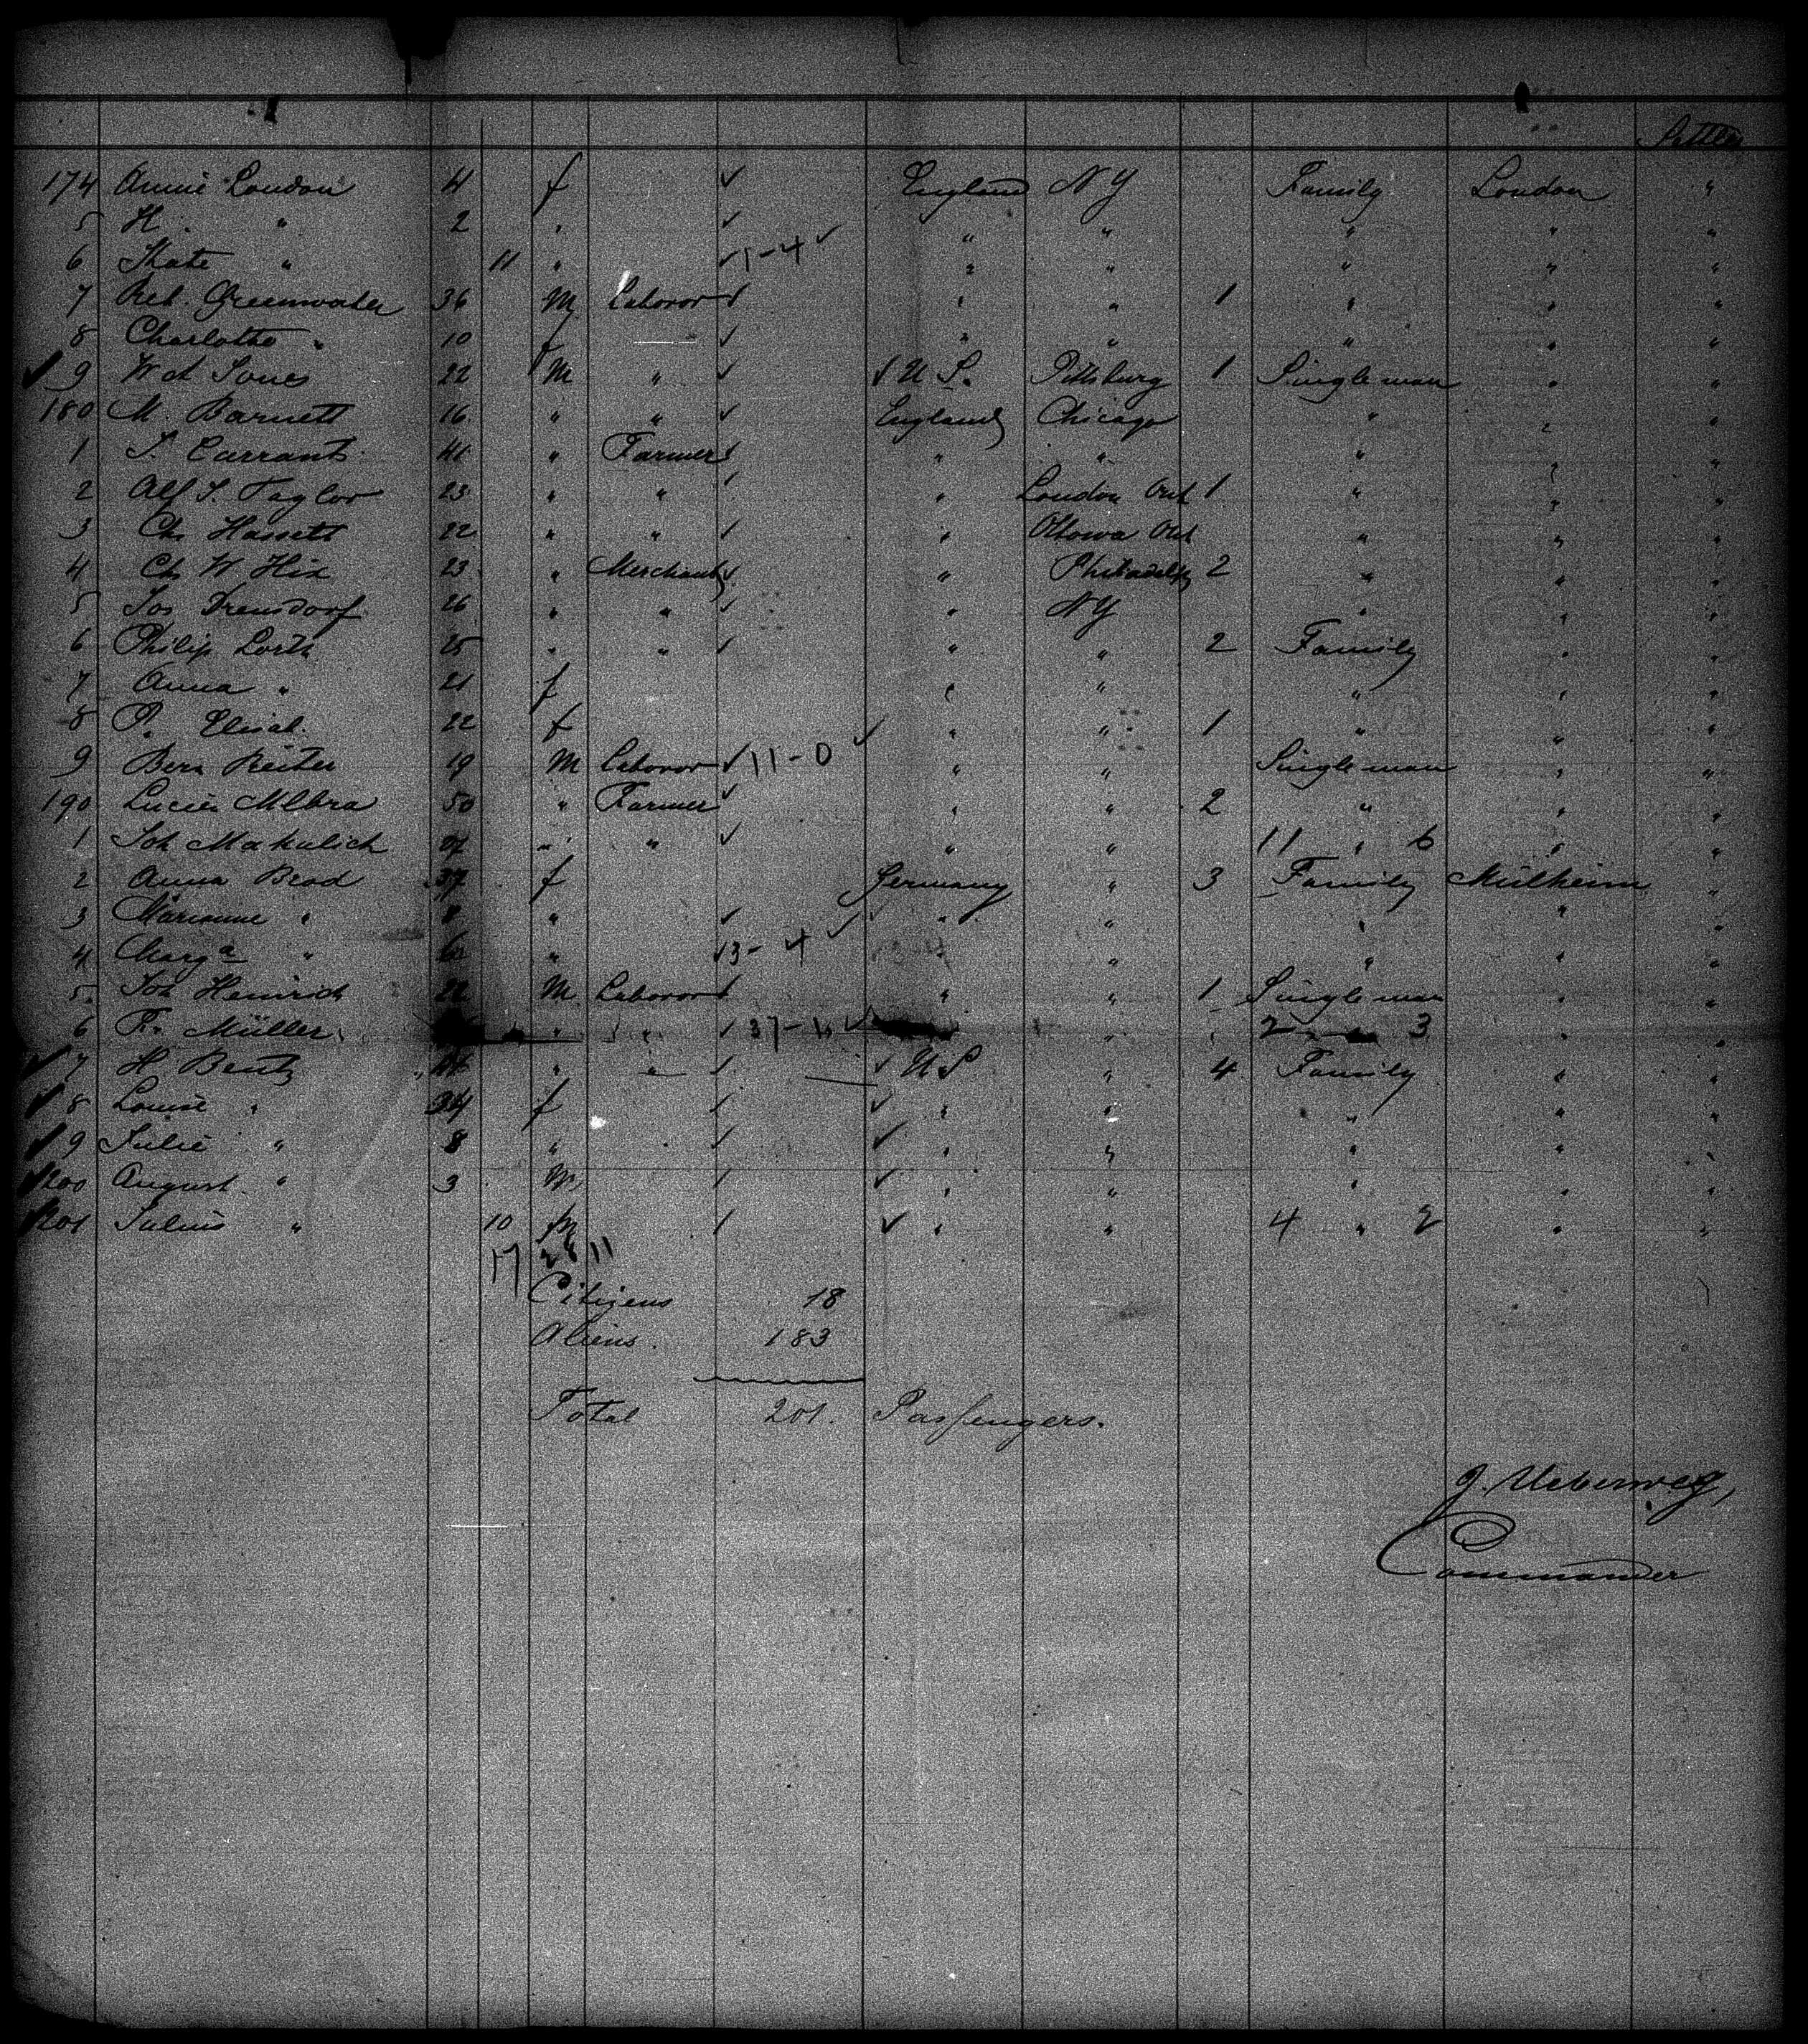 Settler
174 Annie London 4 f ✓ England NY Family London "
5 H. " 2 " ✓ " " " " "
6 Kate " 11 " ✓ 1-4 ✓ " " " " "
7 Reb. Greenwater 36 M Laborer ✓ " " 1 " " "
8 Charlotte " 10 f ✓ " " " " "
✓ 9 W A Jones 22 M " ✓ ✓ U S. Pittsburg 1 Single man " "
180 M. Barnett 16 " " ✓ England Chicago " " "
1 S. Currant 41 " Farmer ✓ " " " " "
2 Alf S. Taylor 23 " " ✓ " London Ont 1 " " "
3 Ch Hassett 22 " " ✓ " Ottowa Ont " " "
4 Ch W Hix 23 " Merchant ✓ " Philadelph 2 " " "
5 Jos Drensdorf 26 " " ✓ " NY " " "
6 Philip Loth 25 " " ✓ " " 2 Family " "
7 Anna " 21 f " " " " "
8 P. Elisab. 22 f ✓ " " 1 " " "
9 Bern Reiter 19 M Laborer ✓ 11-0 " " Single man " "
190 Lucien 50 " Farmer ✓ " " 2 " " "
1 Joh Makulich " " ✓ " " 11 " 6 " "
2 Anna Brod 37 f Germany " 3 Family Mülheim "
3 Marianne " 8 " ✓ ✓ ✓ " " " " "
4 Marga " 6 " ✓ 3-4 ✓ " " " " "
5 Joh Heinrich 22 M Laborer ✓ " " 1 Single man " "
6 Fr. Müller " " ✓ 37- ✓ " 2 " 3 " "
✓ 7 H Bentz 44 " " ✓ ✓ U S " 4 Family " "
✓ 8 Louise " 34 f ✓ ✓ " " " " "
✓ 9 Julie " 8 " ✓ ✓ " " " " "
✓ 200 August " 3 M ✓ ✓ " " " " "
✓ 201 Julius " 10 M ✓ ✓ " " 4 " 2 " "
17 11
Citizens 18
Aliens. 183
Total 201. Passengers.
J. Ueberweg,
Commander